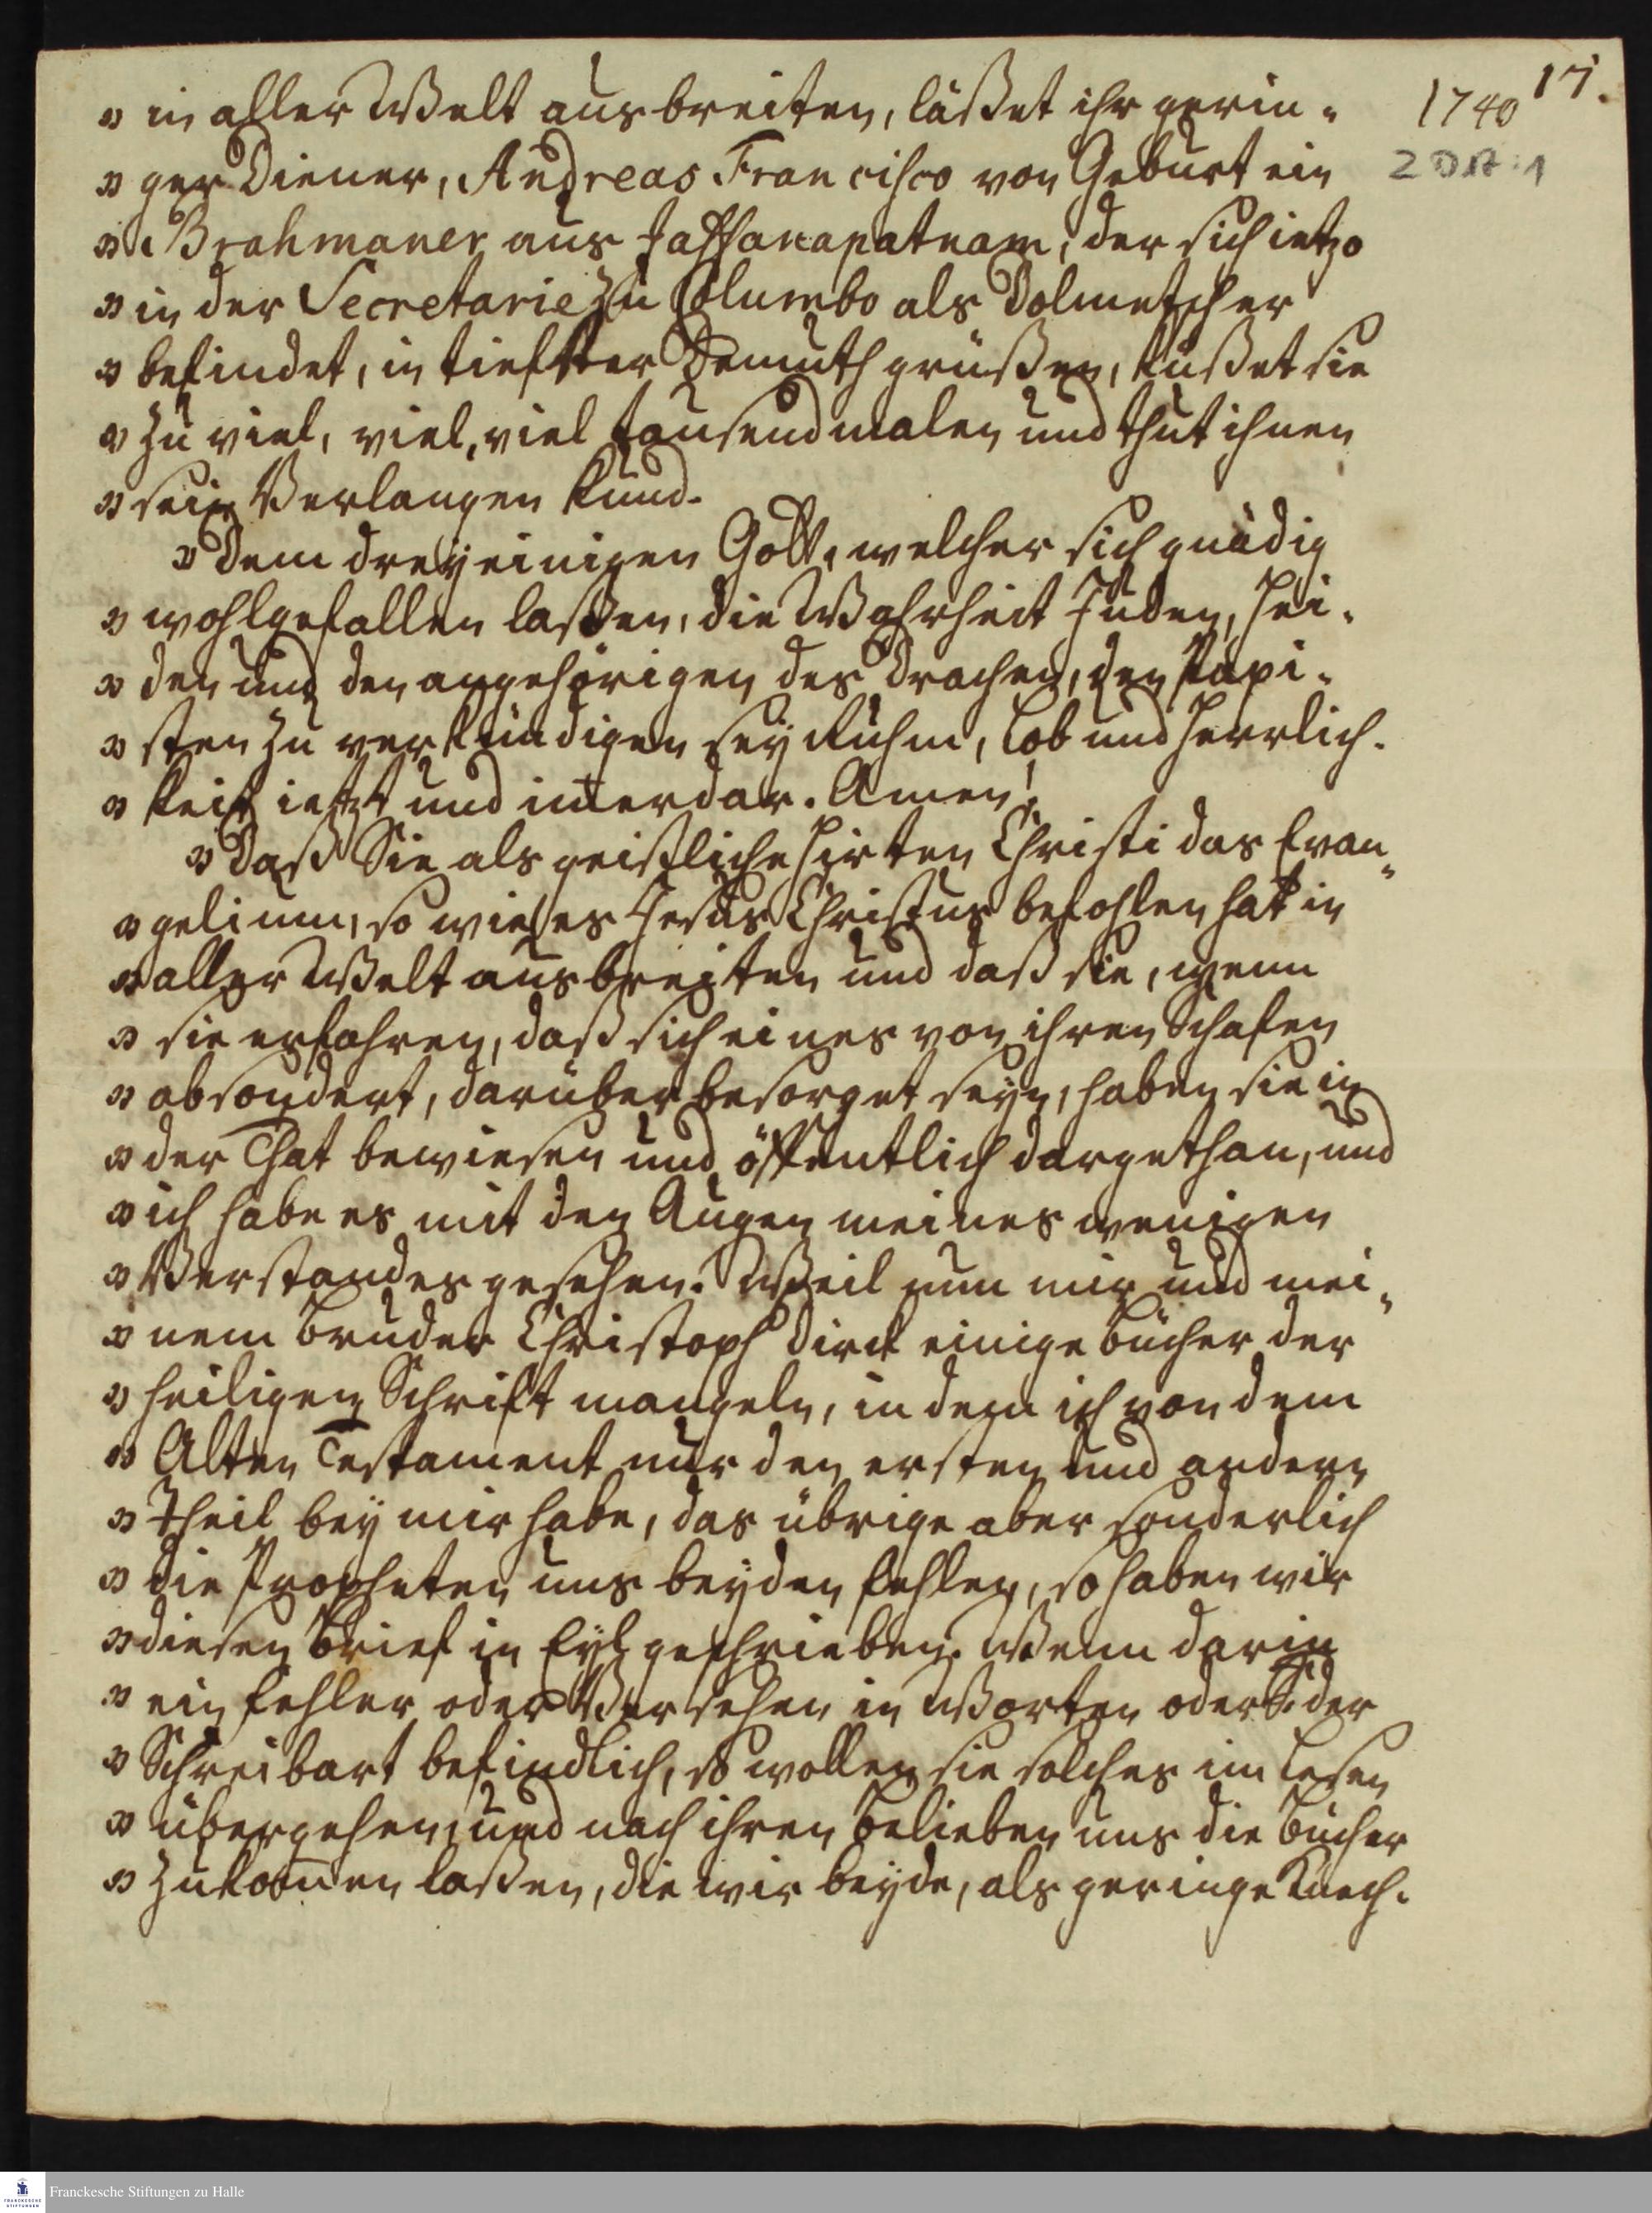 1740 17.
2 DA : 1
" in aller Welt ausbreiten, läßet ihr gerin-
" ger Diener, Andreas Francisco von Geburt ein
" Brahmaner aus Jaffanapatnam, der sich ietzo
" in der Secretarie zu Columbo als Dolmetscher
" befindet, in tiefster Demuth grüßen, küßet sie
" zu viel, viel, viel tausendmalen und thut ihnen
" sein Verlangen kund.
" Dem dreyeinigen Gott, welcher sich gnädig
" wohlgefallen laßen, die Wahrheit Juden, Hei-
" den und den angehörigen des Drachen, den Papi-
" sten zu verkündigen sey Ruhm, Lob und Herrlich-
" keit ietzt und im̄erdar. Amen!
" Daß Sie als geistliche Hirten Christi das Evan-
" gelium, so wie es Jesus Christus befohlen hat in
" aller Welt ausbreiten und daß sie, wenn
" sie erfahren, daß sich eines von ihren Schafen
" absondert, darüber besorget seyn, haben sie in
" der That bewiesen und öffentlich dargethan, und
" ich habe es mit den Augen meines wenigen
" Verstandes gesehen. Weil nun mir und mei-
" nem Bruder Christoph Dirck einige Bücher der
" heiligen Schrift mangeln, indem ich von dem
" Alten Testament nur den ersten und andern
" Theil bey mir habe, das übrige aber sonderlich
" die Propheten uns beyden fehlen, so haben wir
" diesen Brief in Eyl geschrieben. Wenn darin
" ein Fehler oder Versehen in Worten oder der
" Schreibart befindlich, so wollen sie solches im Lesen
" übergehen, und nach ihren Belieben uns die Bücher
" zukom̄en laßen, die wir beyde, als geringe Knech-
Franckesche Stiftungen zu Halle